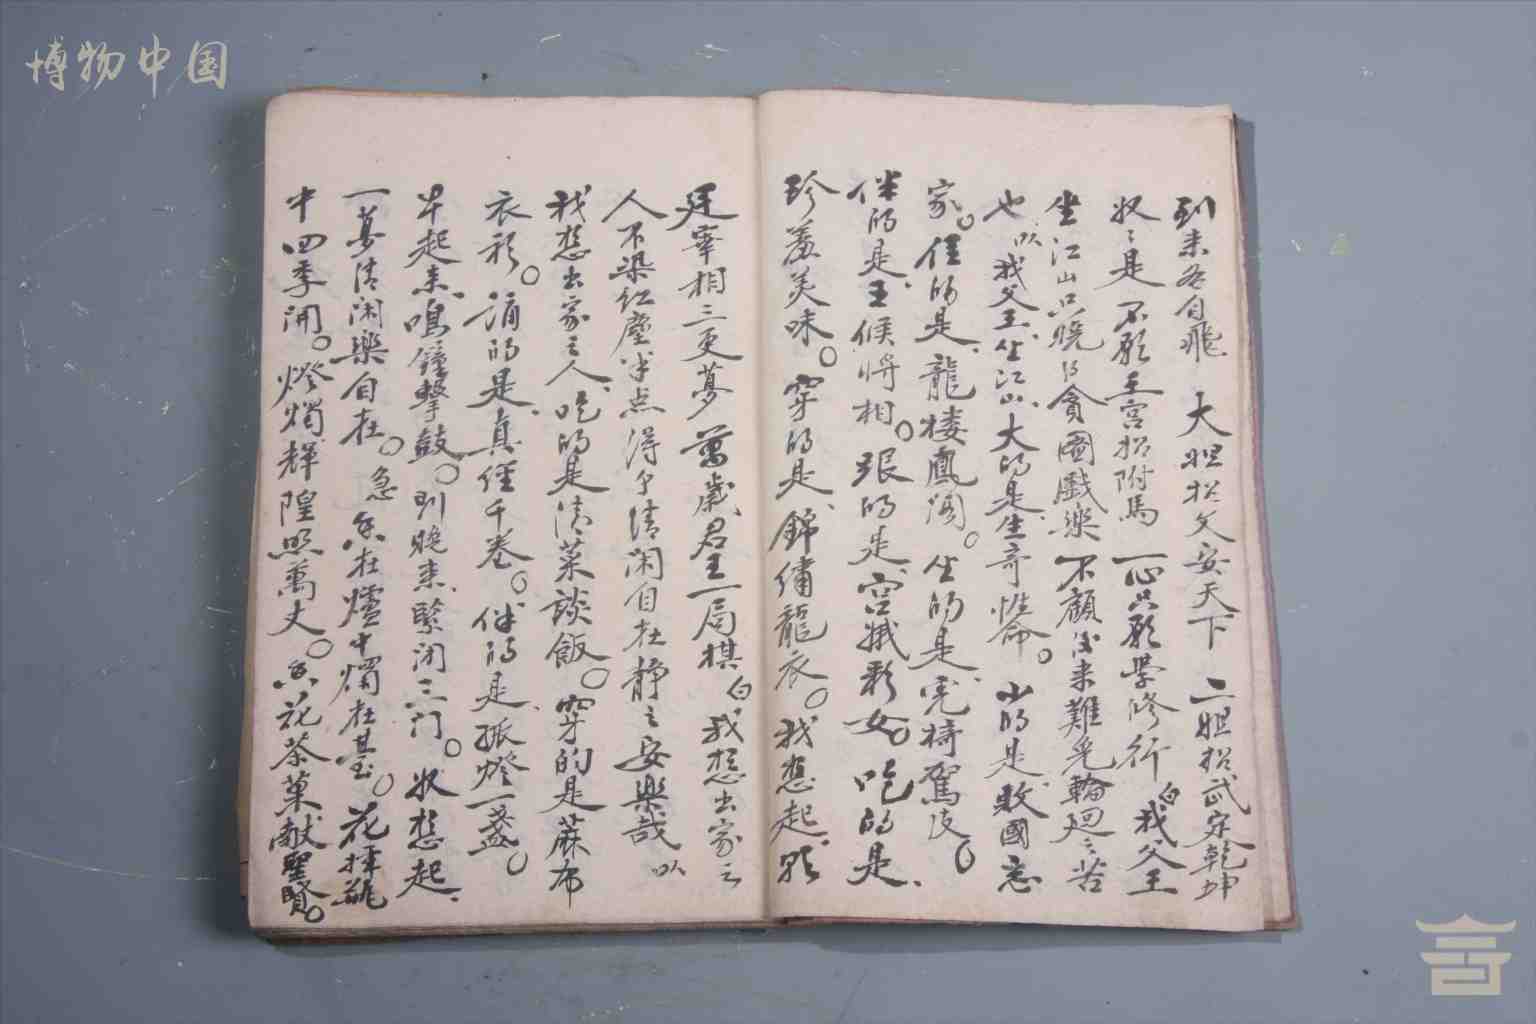 博物中国
到来各自飛 大胆招文安天下 二胆招武定乾坤
奴〻是 不愿王宫招附馬 一心只愿學修行 白 我父王
坐江山只曉得貪圖戲樂 不顧後来難免輪廻之苦
也 以 我父王、坐江山、大的是、生奇性命。小的是、敗國忘
家。住的是、龍楼鳳阁。坐的是、虎椅駕皮。
伴的是、王候將相。跟的是、宫娥彩女。吃的是、
珍羞美味。穿的是、錦绣龍衣。我想起、
廷宰相三更夢 萬歲君王一局棋 白 我想出家之
人不染红塵半点 得个清闲自在静之安樂哉 以
我想出家之人、吃的是、清菜談飯。穿的是、蔴布
衣衫。誦的是、真經千卷。伴的是、孤燈一盞。
早起来、鳴鐘擊鼓。到晚来、緊闭三门。奴想起、
一夢清闲樂自在。急 香在爐中燭在臺。花揷瓶
中四季開。燈燭輝隍照萬丈。香花茶菓献聖賢。